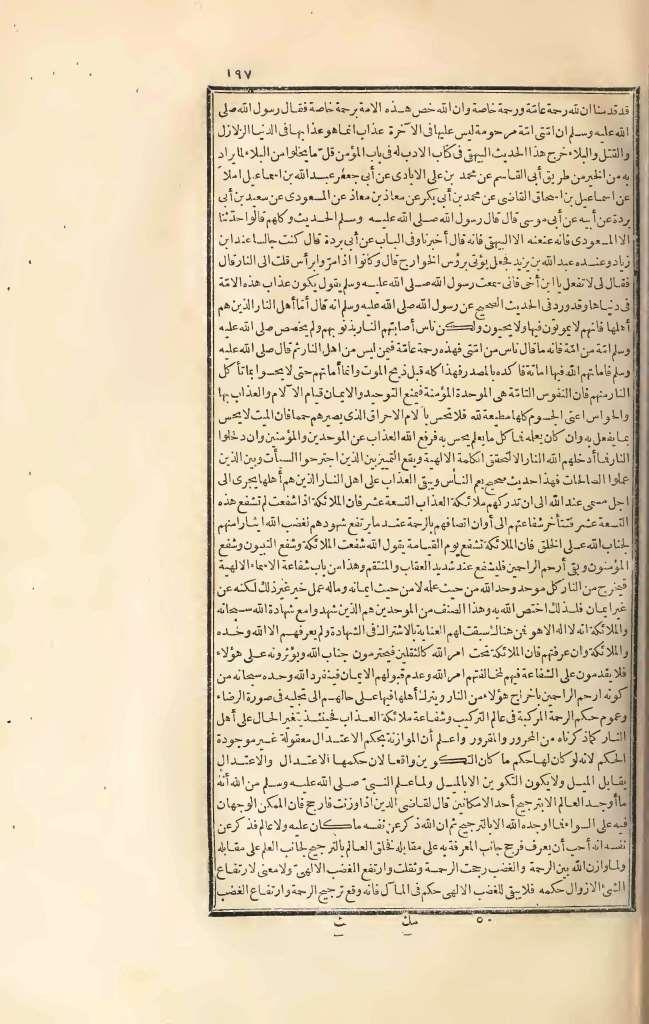 ١٩٧
قد قدمنا ان لله رحمة عامّة ورحمة خاصة وان الله خص هذه الامة برحمة خاصة فقال رسول الله صلى
الله عليه وسلم ان امّتى امّة مرحومة ليس عليها فى الآخرة عذاب انما هو عذابها فى الدنيا الزلازل
والقتل والبلاء خرج هذا الحديث البيهقى فى كتاب الادب له فى باب المؤمن قلّ ما يخلو من البلاء لما يراد
به من الخير من طريق أبى القاسم عن محمد بن على الايادى عن أبى جعفر عبد الله بن اسماعيل املاء
عن اسماعيل بن اسحاق القاضى عن محمد بن أبى بكر عن معاذ بن معاذ عن المسعودى عن سعيد بن أبى
بردة عن أبيه عن أبى موسى قال قال رسول الله صلى الله عليه وسلم الحديث وكلهم قالوا حدّثنا
الا المسعودى فانه عنعنه الا البيهقى فانه قال أخبرنا وفى الباب عن أبى بردة قال كنت جالسا عند ابن
زياد وعنده عبد الله بن يزيد فجعل يؤتى برؤس الخوارج قال وكانوا اذا مرّوا برأس قلت الى النار قال
فقال لى لا تفعل يا ابن أخى فانى سمعت رسول الله صلى الله عليه وسلم يقول يكون عذاب هذه الامّة
فى دنياها وقد ورد فى الحديث الصحيح عن رسول الله صلى الله عليه وسلم انه قال أمّا أهل النار الذين هم
أهلها فانهم لا يموتون فيها ولا يحيون ولكن ناس أصابتهم النار بذنوبهم ولم يخصص صلى الله عليه
وسلم امّة من امّة فانه ما قال ناس من امّتى فهذه رحمة عامّة فيمن ليس من اهل النار ثم قال صلى الله عليه
وسلم فاماتهم الله فيها اماتة فاكده بالمصدر فهذا كله قبل ذبح الموت وانما أماتهم حتى لا يحسوا بما تأكل
النار منهم فان النفوس التامّة هى الموحدة المؤمنة فيمنع التوحيد والايمان قيام الآلام والعذاب بها
والحواس اعنى الجسوم كلها مطيعة لله فلا تحس بآلام الاحراق الذى يصيرهم حمما فان الميت لا يحس
بما يفعل به وان كان يعلمه فما كل ما يعلم يحس به فرفع الله العذاب عن الموحدين والمؤمنين وان دخلوا
النار فما أدخلهم الله النار الا لتحقق الكلمة الالهية ويقع التمييز بين الذين اجترحوا السيآت وبين الذين
عملوا الصالحات فهذا حديث صحيح يعم الناس ويبقى العذاب على اهل النار الذين هم أهلها يجرى الى
اجل مسمى عند الله الى ان تدركهم ملائكة العذاب التسعة عشر فان الملائكة اذا شفعت لم تشفع هذه
التسعة عشر فتتأخر شفاعتهم الى أوان اتصافهم بالرحمة عند ما يرتفع شهودهم لغضب الله ايثارا منهم
لجناب الله على الخلق فان الملائكة تشفع يوم القيامة يقول الله شفعت الملائكة وشفع النبيون وشفع
المؤمنون وبقى أرحم الراحمين فليشفع عند شديد العقاب والمنتقم وهذا من باب شفاعة الاسماء الالهية
فيخرج من النار كل موحد وحد الله من حيث علمه لا من حيث ايمانه وماله عمل خير غير ذلك لكنه عن
غير ايمان فلذلك اختص الله به وهذا الصنف من الموحدين هم الذين شهدوا مع شهادة الله سبحانه
والملائكة انه لا اله الا هو فمن هنالك سبقت لهم العناية بالاشتراك فى الشهادة ولم يعرفهم الا الله وحده
والملائكة وان عرفتهم فان الملائكة تحت امر الله كالثقلين فيحترمون جناب الله ويؤثرونه على هؤلاء
فلا يقدمون على الشفاعة فيهم لمخالفتهم امر الله وعدم قبولهم الايمان فينفرد الله وحده سبحانه من
كونه ارحم الراحمين باخراج هؤلاء من النار ويترك أهلها فيها على حالهم الى تجليه فى صورة الرضاء
وعموم حكم الرحمة المركبة فى عالم التركيب وشفاعة ملائكة العذاب فحينئذ يتغير الحال على أهل
النار كما ذكرناه من المحرور والمقرور واعلم أن الموازنة بحكم الاعتدال معقولة غير موجودة
الحكم لانه لو كان لها حكم ما كان التكوين واقعا لان حكمها الاعتدال والاعتدال
يقابل الميل ولا يكون التكوين الا بالميل ولما علم النبىّ صلى الله عليه وسلم من الله أنه
ما أوجد العالم الا بترجيح أحد الامكانين قال لقاضى الدين اذا وزنت فارجح فان الممكن الوجهان
فيه على السواء فما اوجده الله الا بالترجيح ثم ان الله ذكر عن نفسه ما كان عليه ولا عالم فذكر عن
نفسه انه أحب أن يعرف فرجح جانب المعرفة به على مقابله فخلق العالم بالترجيح لجانب العلم على مقابله
ولما وازن الله بين الرحمة والغضب رجحت الرحمة وثقلت وارتفع الغضب الالهىّ ولا معنى لارتفاع
الشئ الا زوال حكمه فلا يبقى للغضب الالهى حكم فى المآل فانه وقع ترجيح الرحمة وارتفاع الغضب
٥٠ مك ث